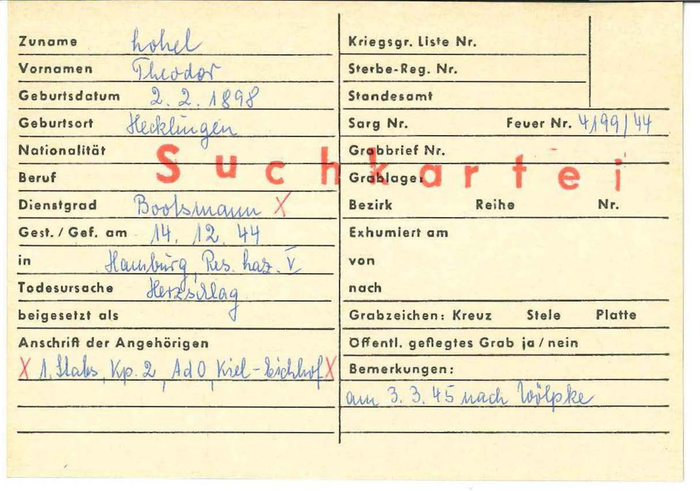 Zuname hohel
Vornamen Theodor
Geburtsdatum 2.2.1898
Geburtsort Hecklingen
Nationalität
Beruf
Dienstgrad Bootsmann X
Gest./Gef. am 14.12.44
in Hamburg, Res. Laz. V
Todesursache Herzschlag
beigesetzt als
Anschrift der Angehörigen
X 1. Stabs, Kp. 2, AdO, Kiel-Eichhof X
Suchkartei
Kriegsgr. Liste Nr.
Sterbe-Reg. Nr.
Standesamt
Sarg Nr. Feuer Nr. 4199/44
Grabbrief Nr.
Grablage:
Bezirk Reihe Nr.
Exhumiert am
von
nach
Grabzeichen: Kreuz Stele Platte
Öffentl. gepflegtes Grab ja/nein
Bemerkungen:
am 3.3.45 nach Wölpke